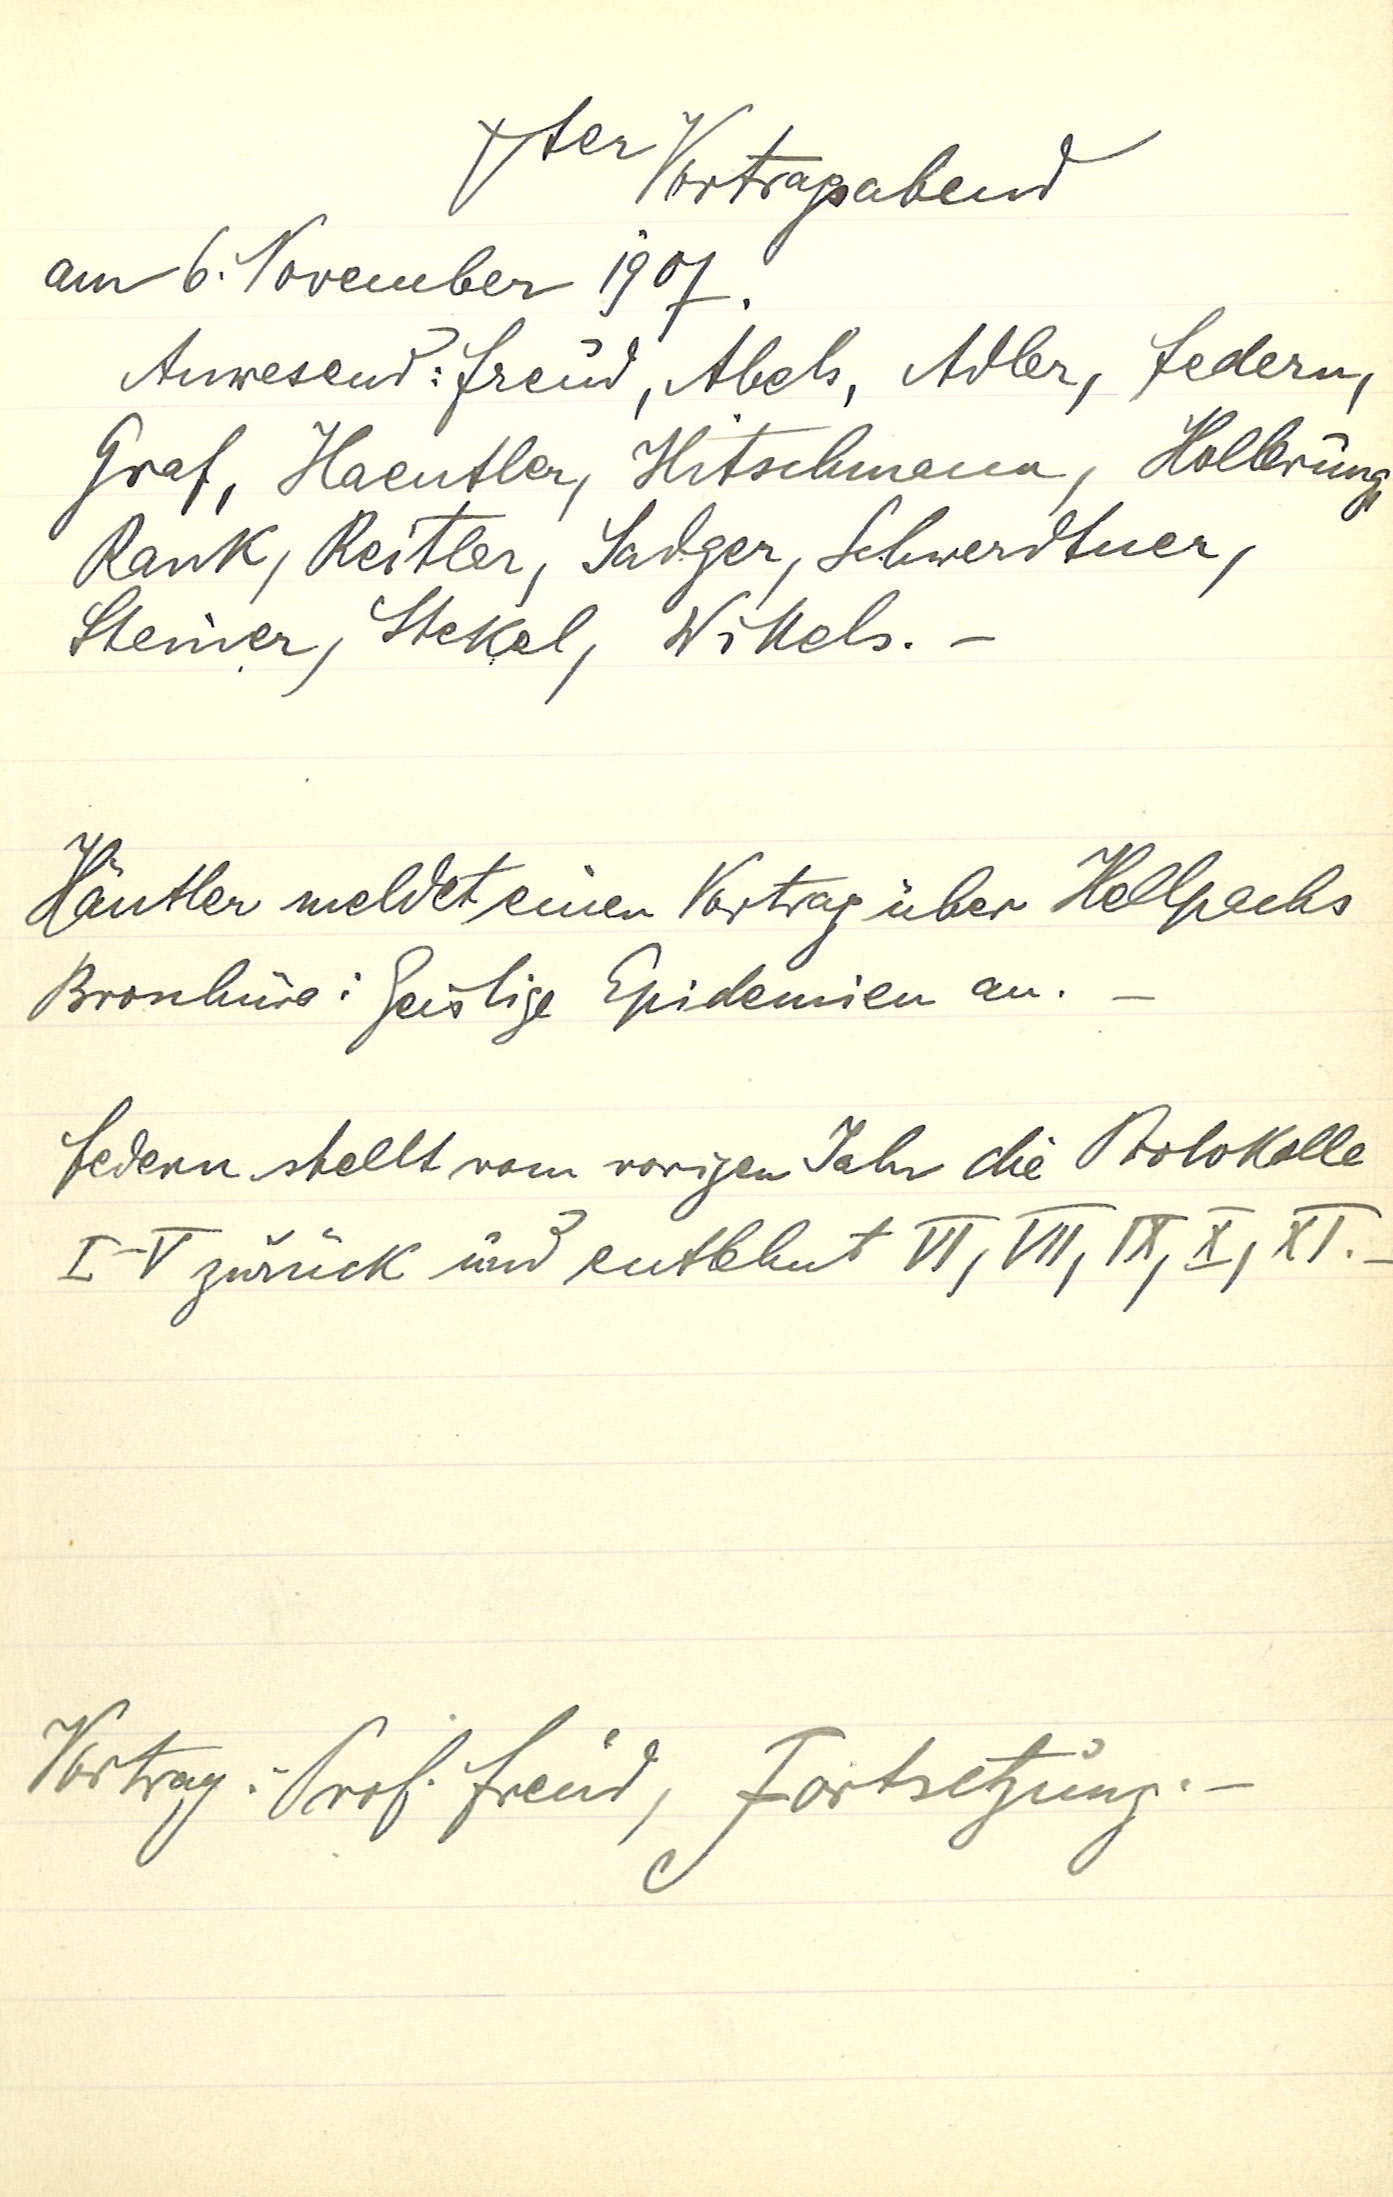 7ter Vortragsabend
am 6. November 1907.
Anwesend: Freud, Abels, Adler, Federn,
Graf, Haeutler, Hitschmann, Hollerung,
Rank, Reitler, Sadger, Schwerdtner,
Steiner, Stekel, Wittels. –
Häutler meldet einen Vortrag über Hellpachs
Broschüre: Geistige Epidemien an. –
Federn stellt vom vorigen Jahr die Protokolle
I–V zurück und entlehnt VI, VII, IX, X, XI. –
Vortrag: Prof. Freud, Fortsetzung. –